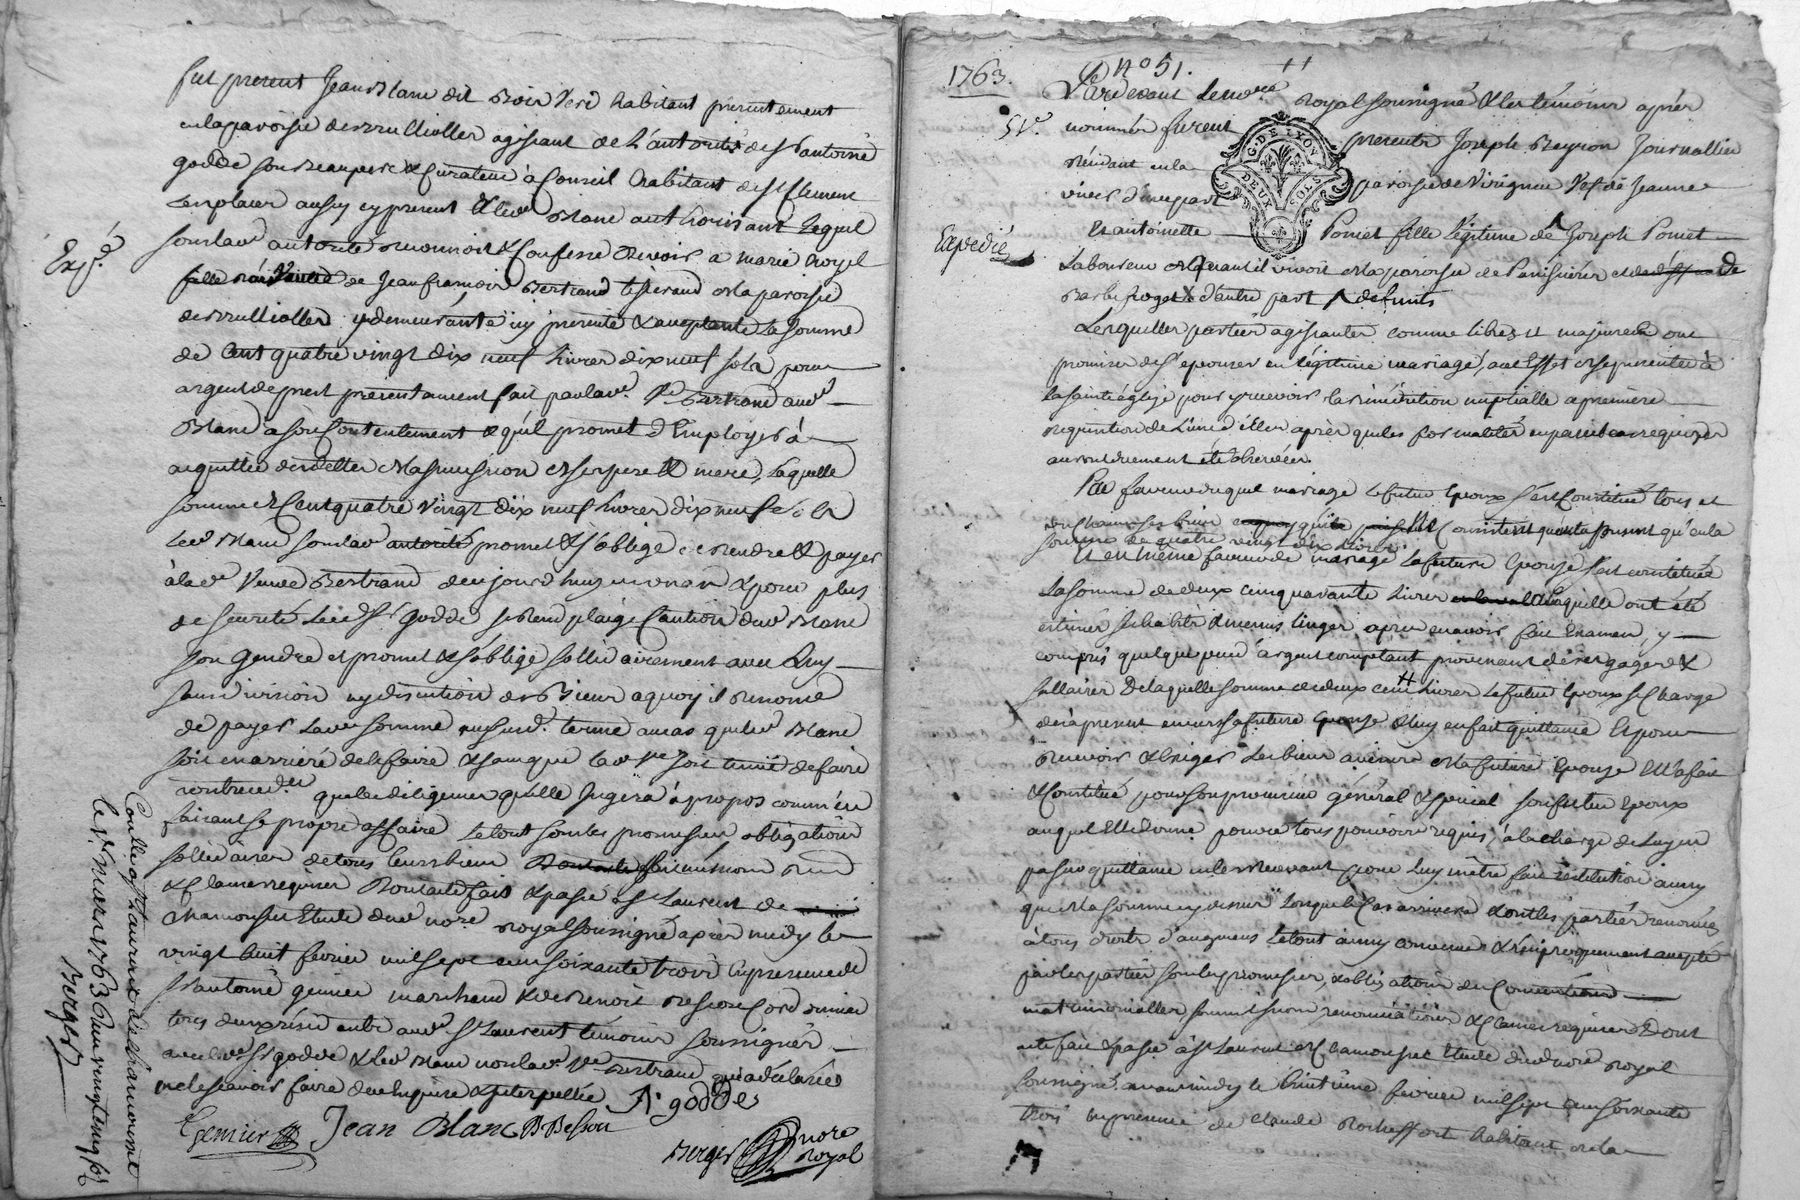 fut present Jean Blanc dit Bois Verd habitant presentement
en la paroisse de agissant de l'autorité de Sr antoine
godde son Beaupere & Curateur à Conseil habitant de St Clement
les places aussy cy present & led. Blanc authorisant Lequel
sous lad. autorité reconnoit & Confesse devoir a marie Royel
Veuve de Jean francois Bertrand tisserand de la paroisse
Exp.
de y demeurante icy presente & acceptante la somme
de Cent quatre vingt dix neuf livres dix neuf sols pour
argent de prest presentement fait par lad. Ve Bertrand aud.
Blanc a son Contentement & qu'il promet d'Employer à
acquitter des dettes de la succession de ses pere & mere, Laquelle
somme de Cent quatre vingt dix neuf livres dix neuf sols
Led. Blanc sous lad. autorité promet & s'oblige de rendre & payer
à lad. Veuve Bertrand de ce jourd'huy en un an & pour plus
de seureté Led. Sr godde se rend plaige Caution dud. Blanc
son gendre et promet & s'oblige sollidairement avec Luy
sans division ny discution de Bien a quoy il renonce
de payer lad. somme aud. terme au cas que led. Blanc
soit en arriere de le faire & sans que lad. Ve soit tenue de faire
contre led. quelles diligences qu'elle jugera à propos comme en
faisant sa propre affaire Le tout sous les promesses, obligations
sollidaires de tous leurs biens
& Clauses requises Dont acte fait & passé à St Laurent de
Chamousset Etude dud. nore. royal soussigné après midy le
vingt huit fevrier mil sept cent soixante trois En presence de
Sr antoine gemier marchand & de Benoit Besson Cordonnier
tous deux residents aud. St Laurent témoins soussignés
avec led. Sr godde & led. Blanc non lad. Ve Bertrand qui a declaré
ne le scavoir faire de ce enquise & interpellée A. godde
Gemier Jean Blanc B Besson
Berger nore royal
Controllé à St Laurent de chamousset
le 1er mars 1763 Reçu vingt cinq s.
Berger
1763.
Le n° 51.
Pardevant le nore. Royal soussigné & les témoins après
51e.
nommés furent presents Joseph Beyron Journallier
G. DE LYON
DEUX SOLS
Résidant en la paroisse de Virigneu Vef de Jeanne
d'une part
Expedié
Et antoinette Pomet fille légitime de Joseph Pomet
Laboureur quand il vivoit de la paroisse de Panissieres et de
Barbe froget d'autre part defunts
Lesquelles parties agissantes comme libres et majeures ont
promises de s'epouser en légitime mariage, a cet Effet de se presenter à
la sainte églize pour y recevoir la Bénédiction nuptialle a premiere
requisition de L'une d'elles après que les formalités en pareil cas requises
auront duement été observées.
En faveur duquel mariage le futur Epoux s'est Constitué tous et
un Chacuns ses biens Consistent quant a present qu'en la
somme de quatre vingt dix livres.
Et en même faveur de mariage La future Epouse s'est constituée
La somme de deux cinquarante livres laquelle ont été
estimés ses habits & menus linges, après en avoir fait Examen, y
compris quelque peu d'argent comptant provenant de ses gages &
sallaires De laquelle somme de deux cent livres Le futur Epoux se Charge
des à present envers sa future Epouse & luy en fait quittance Et pour
Recevoir & Exiger Les biens avenir de la future Epouse Elle a fait
& Constitué pour son procureur général & special son futur Epoux
auquel Elle donne pouvoir tous pouvoirs requis, à la charge de luy en
passer quittance en les Recevant pour Luy m'être fait restitution ainsy
que de la somme cy dessus Lorsque le Cas arrivera & ont les parties renoncé
à tous droits d'augment Le tout ainsy convenu & réciproquement accepté
par les parties sous les promesses, & obligations de Conventions
matrimonialles soumissions renonciations & Clauses requises Dont
acte fait & passé à St Laurent de Chamousset Etude dud. nore royal
soussigné avant midy le huitieme fevrier mil sept cent soixante
trois En presence de Claude Rocheffort habitant de la